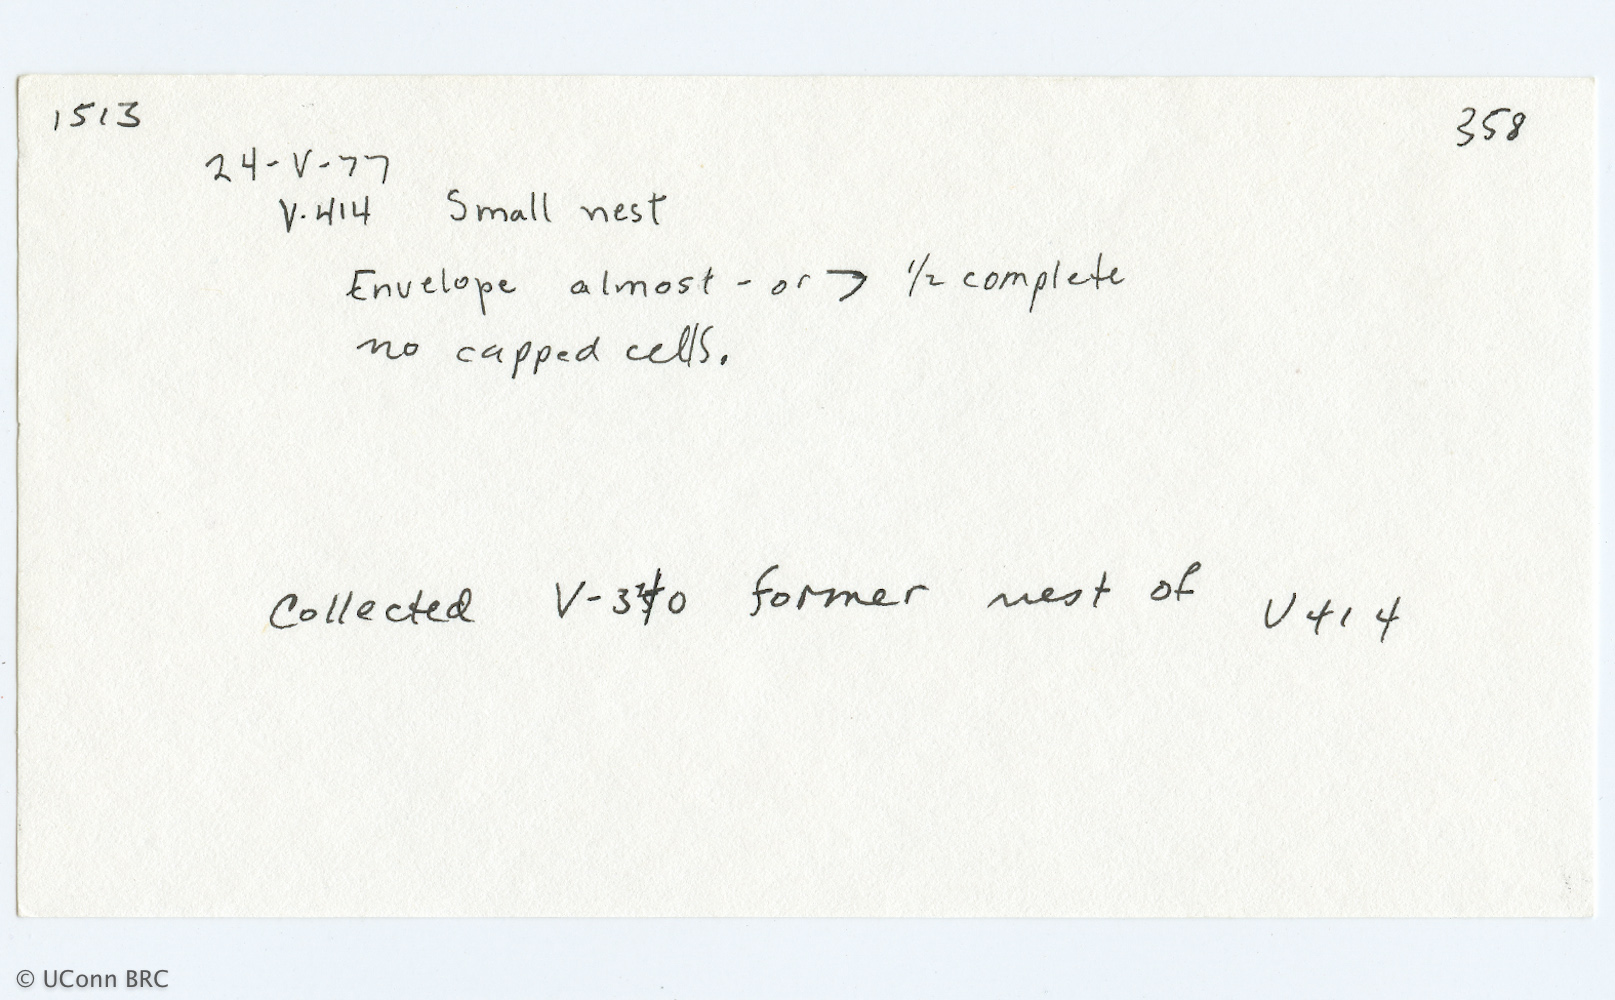 1513
358
24-V-77
V.414 Small nest
Envelope almost - or > 1/2 complete
no capped cells.
Collected former nest of V414
© UConn BRC